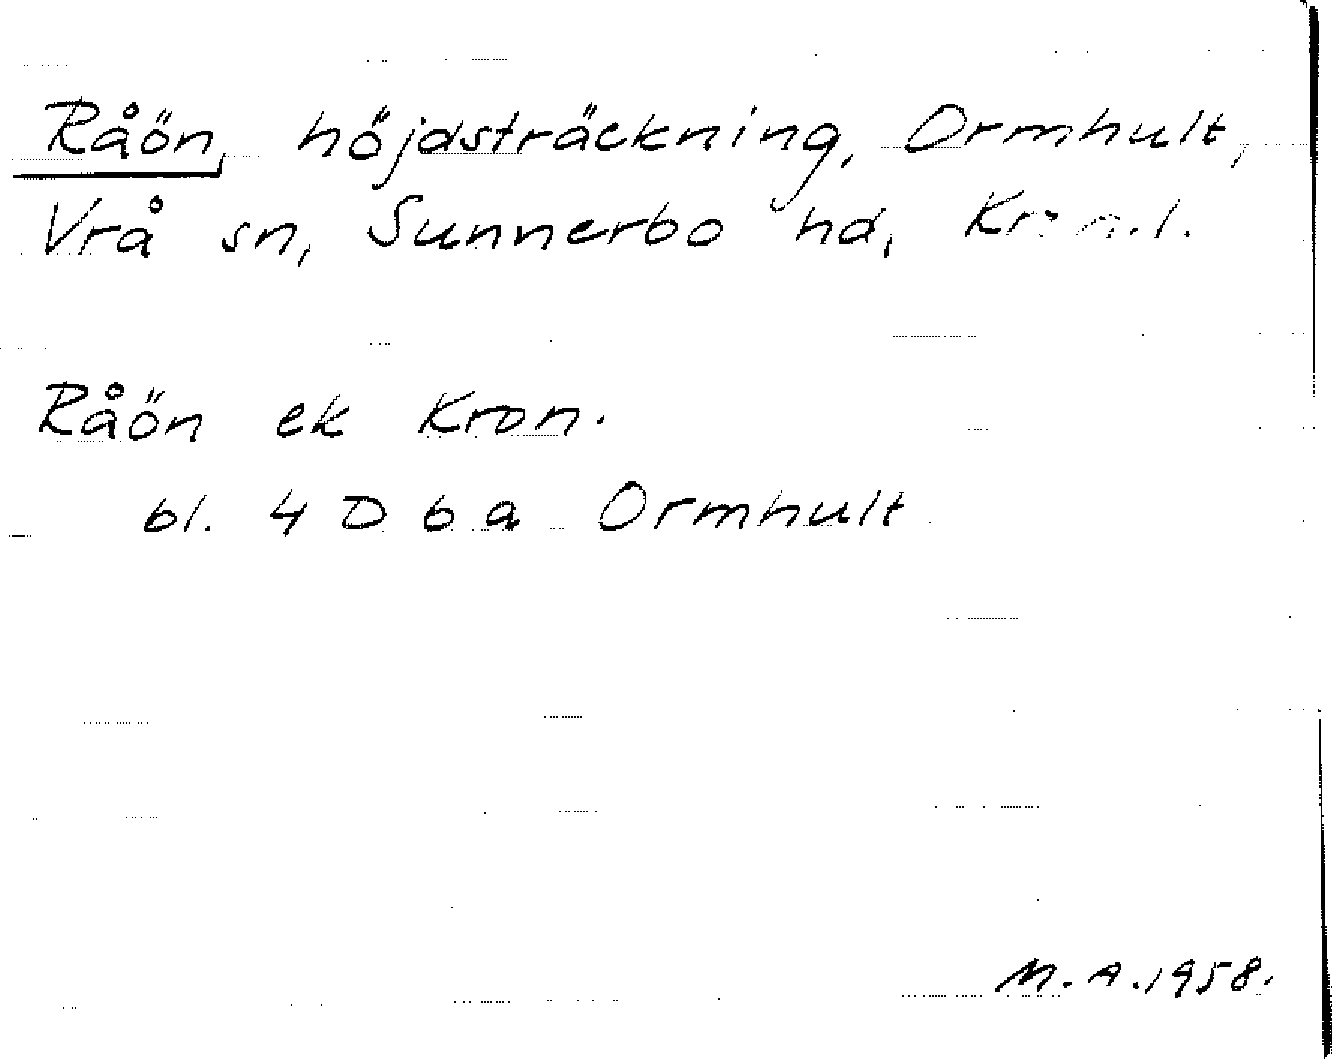 Råön, höjdsträckning, Ormhult,
Vrå sn, Sunnerbo hd, Kron.l.
Råön ek Kron.
bl. 4 D 6 a Ormhult
M.A.1958.